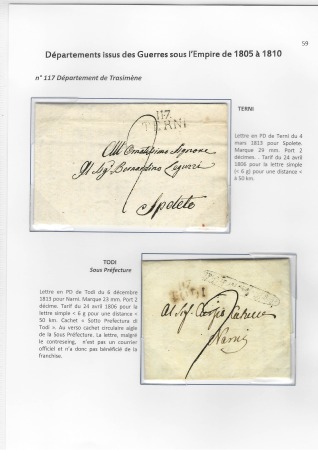 59
Départements issus des Guerres sous l'Empire de 1805 à 1810
n° 117 Département de Trasimène
TERNI
Lettre en PD de Terni du 4
mars 1813 pour Spolete.
Marque 29 mm. Port 2
décimes. . Tarif du 24 avril
1806 pour la lettre simple
(< 6 g) pour une distance <
à 50 km.
117
TERNI
Spoleto
TODI
Sous Préfecture
Lettre en PD de Todi du 6 décembre
1813 pour Narni. Marque 23 mm. Port 2
décime. Tarif du 24 avril 1806 pour la
lettre simple < 6 g) pour une distance <
50 km. Cachet « Sotto Prefettura di
Todi ». Au verso cachet circulaire aigle
de la Sous Préfecture. La lettre, malgré
le contreseing, n'est pas un courrier
officiel et n'a donc pas bénéficié de la
franchise.
Narni